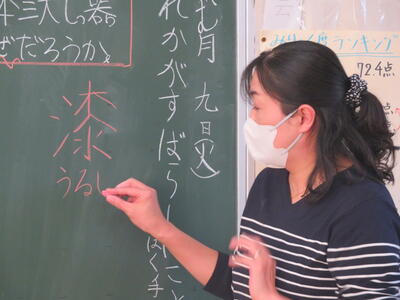 本三大しっ器
ぜだろうか。
漆
うるし
む月 九日(火)
れかがすばらしいこと
く手
みりょく度ランキング
72.4点
点